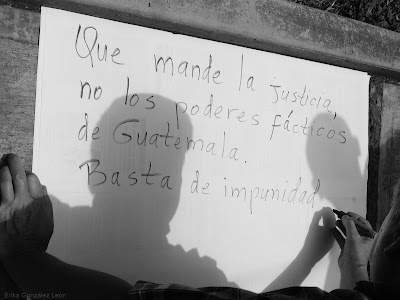 Que mande la justicia,
no los poderes fácticos
de Guatemala.
Basta de impunidad
Erika González León